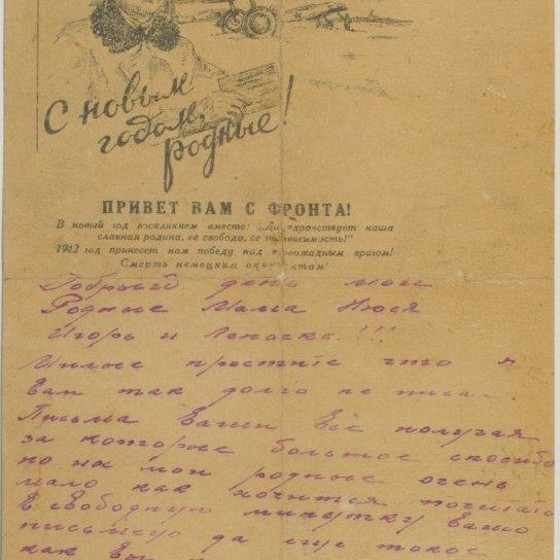 С новым
годом,
родные!
ПРИВЕТ ВАМ С ФРОНТА!
В новый год воскликнем вместе: „Да здравствует наша
славная родина, ее свобода, ее независимость!"
1942 год принесет нам победу над кровожадным врагом!
Смерть немецким оккупантам!
Добрый день мои
Родные Мама Нюся
Игорь и Леночка!!!
Милые простите что я
Вам так долго не писа...
Письма Ваши Все получая
за которые большое спасибо
но на мои родные очень
мало как хочится почитать
В свободную минутку Ваше
письмецо да еще такое
как Вы